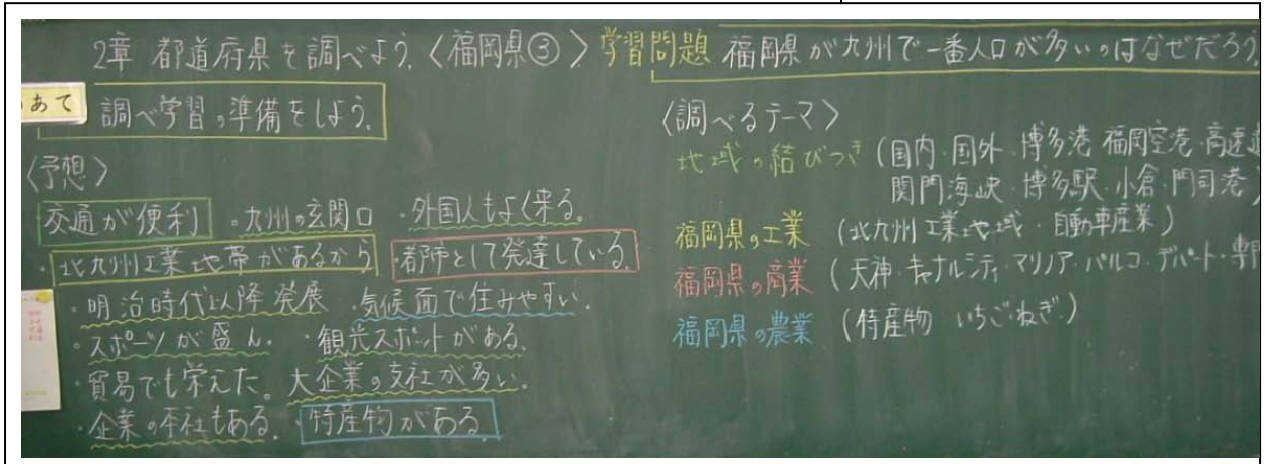 2章 都道府県を調べよう.〈福岡県③〉
学習問題 福岡県が九州で一番人口が多いのはなぜだろう.
あて
調べ学習の準備をしよう.
〈予想〉
・交通が便利 ・九州の玄関口 ・外国人もよく来る.
・北九州工業地帯があるから ・都市として発達している.
・明治時代以降発展 ・気候面で住みやすい.
・スポーツが盛ん. ・観光スポットがある.
・貿易でも栄えた。大企業の支社が多い.
・企業の本社もある. ・特産物がある
〈調べるテーマ〉
地域の結びつき (国内・国外・博多港 福岡空港・高速道
関門海峡・博多駅・小倉・門司港)
福岡県の工業 (北九州工業地域・自動車産業)
福岡県の商業 (天神・キャナルシティ・マリノア・パルコ・デパート・専門
福岡県の農業 (特産物 いちご・ねぎ)